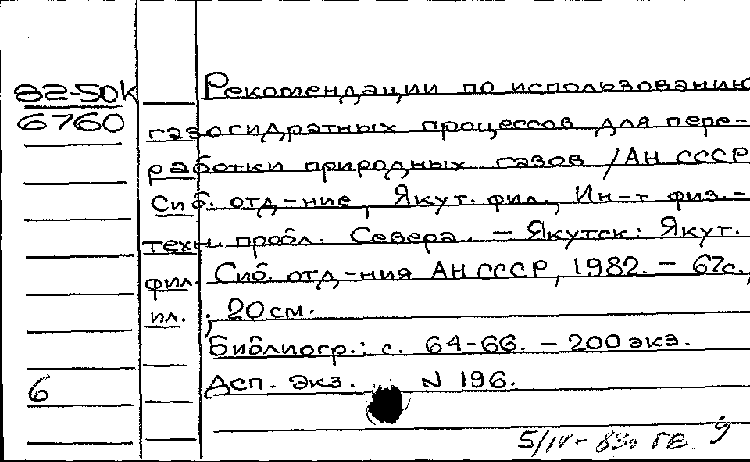 82-50К Рекомендации по использованию
6760 газогидратных процессов для пере-
работки природных газов / АН СССР
Сиб. отд-ние, Якут. фил., Ин-т физ.-
техн. пробл. Севера. – Якутск: Якут.
фил. Сиб. отд-ния АН СССР, 1982. – 67с.,
ил. ; 20 см.
Библиогр.: с. 64-66. – 200 экз.
6 Дсп. Экз. N 196.
5/IV-83г